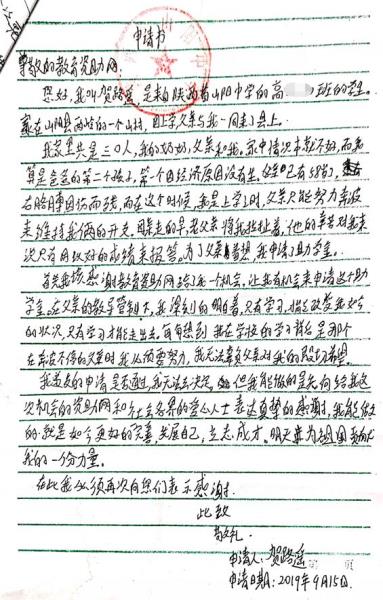 申请书
尊敬的教育资助网:
您好,我叫贺路遥,是来自陕西省山阳中学的高 班的学生。
家在山阳县西然的一个山村,因上学父亲与我一同来了县上。
我家里共是三口人,我的奶奶,父亲和我。家中情况本就不好,而我
算是爸爸的第二个孩子,第一个因经济原因没有生。父亲已有58岁了,
右胳膊因伤而残,而在这个时候,我是上学了时,父亲只能努力幸波
来维持我们两的开支,因年走的早,老父亲将我拉扯着,他的辛苦对我来
次只有用以好的成绩来报答。为了父亲着想,我申请了助学金。
首先我该感谢教育资助网给了我一个机会,让我有机会来申请这个助
学金。在父亲的教导管制下,我深刻的明着,只有学习,才能改变我如今
的状况,只有学习才能走出去。每每想到我在学校的学习都是那个
在奔波不停的父亲时我必须要努力,我无法辜负父亲对我的殷切希望。
我这次的申请是否通过,我无法去决定,但我能做的是先向给我这
次机会的资助网和社会各界的爱心人士表达真挚的感谢,我能做
的就是如今更好的完善,发展自己,立志成才。明天来为祖国贡献
我的一份力量。
在此我必须再次向您们表示感谢.
此致
敬礼.
申请人: 贺路遥 第 页
申请日期: 2019年9月15日.